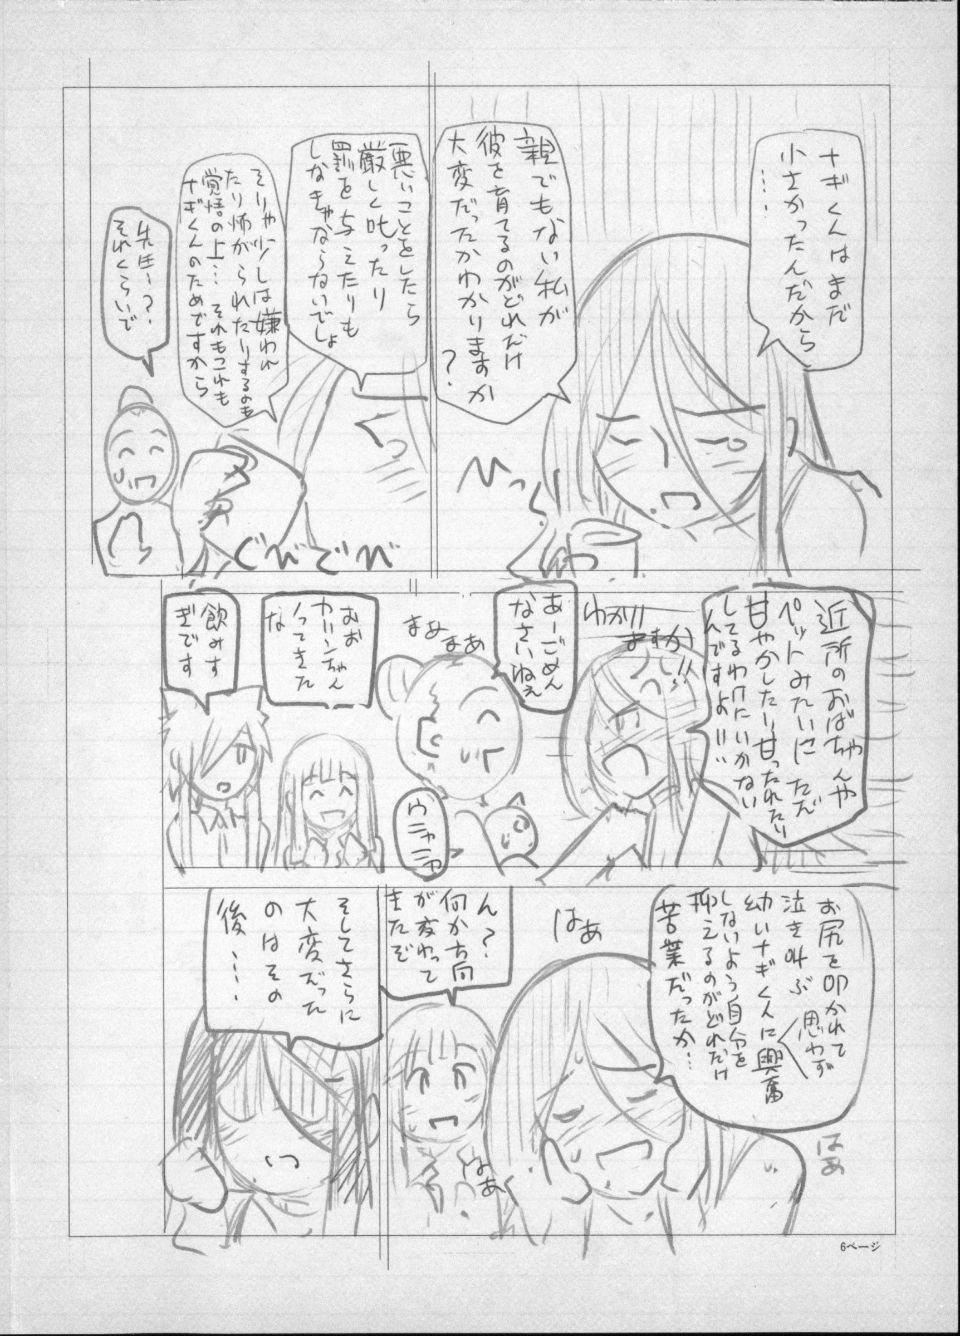 ナギくんはまだ
小さかったんだから
…
親でもない私が
彼を育てるのがどれだけ
大変だったかわかりますか
?
ひっ
悪いことをしたら
厳しく叱ったり
罰を与えたりも
しなきゃならないでしょ
そりゃ少しは嫌われ
たり怖がられたりするのも
覚悟の上… それもこれも
ナギくんのためですから
先生…?
それくらいで
ぐでんでん
近所のおばちゃんや
ペットみたいにただ
甘やかしたり甘ったれたり
してるわけにいかない
んですよ!!
わかり
ますか!!
あーごめん
なさいねぇ
まぁまぁ
ウニャニャ
おお
カリンちゃん
のってきた
な
飲みす
ぎです
はぁ
はぁ
はぁ
ん?
何か方向
が変わって
きたぞ
そしてさらに
大変だった
のはその
後…
6ページ